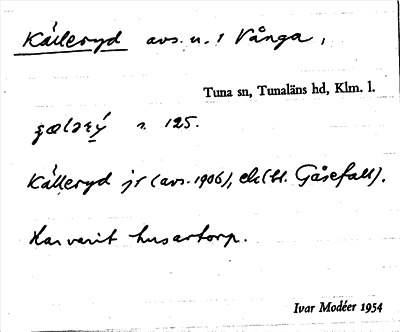 Källeryd avs. u. 1 Vånga,
Tuna sn, Tunaläns hd, Klm. l.
s. 125.
Källeryd jr (avs. 1906), ek (bl. Gåsefall).
Har varit husartorp.
Ivar Modéer 1954